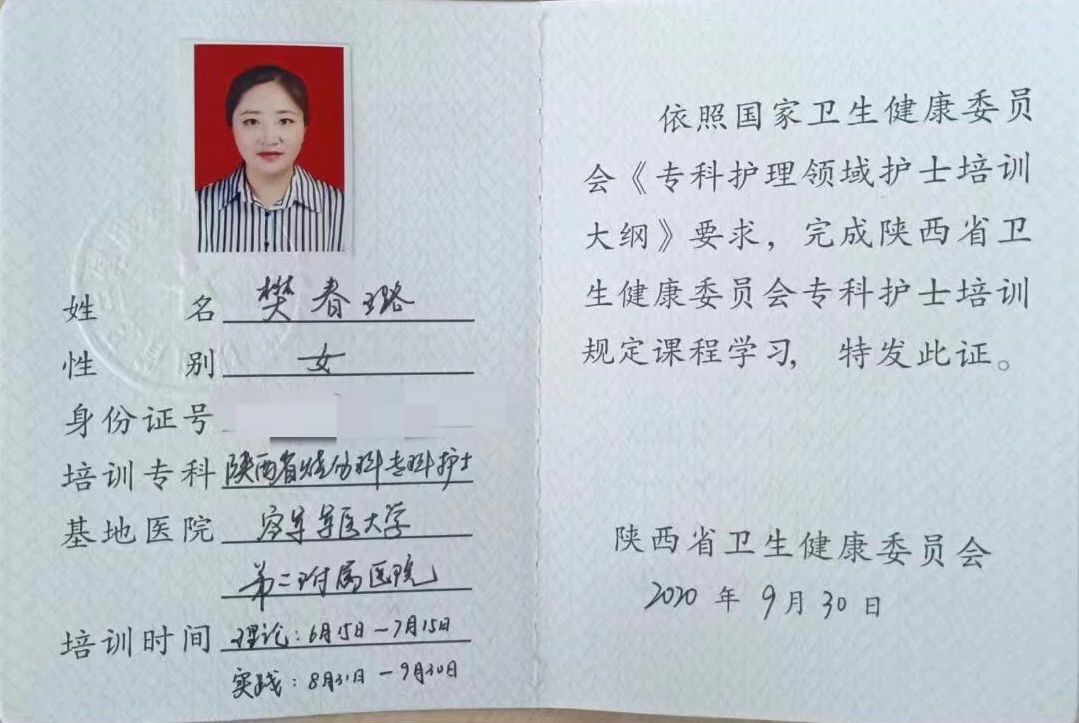 姓名 樊春璐
性别 女
身份证号
培训专科 陕西省烧伤科专科护士
基地医院 空军军医大学
第二附属医院
培训时间 理论:6月15日-7月15日
实践:8月31日-9月30日
依照国家卫生健康委员
会《专科护理领域护士培训
大纲》要求,完成陕西省卫
生健康委员会专科护士培训
规定课程学习,特发此证。
陕西省卫生健康委员会
2020年9月30日